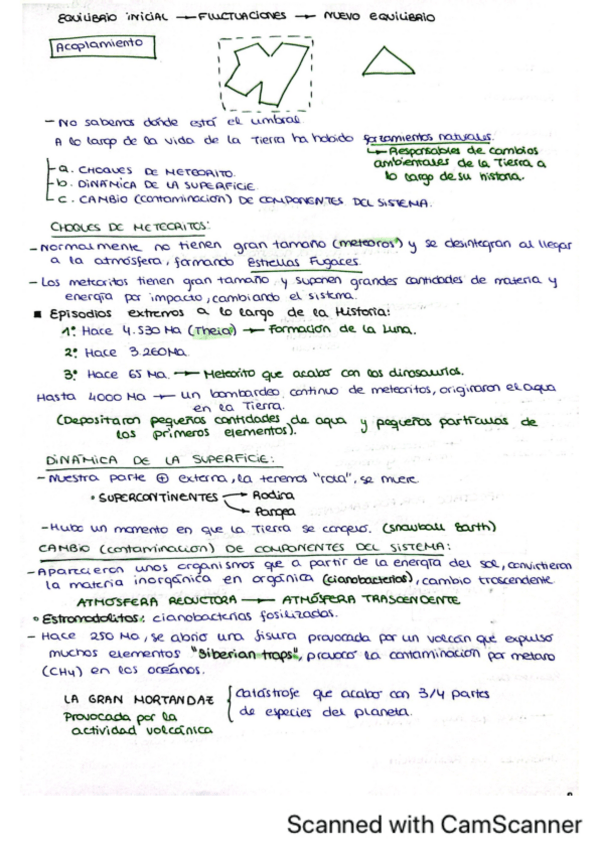 EQUILIBRIO INICIAL → FLUCTUACIONES → NUEVO EQUILIBRIO
Acoplamiento
- No sabemos dónde está el umbral
A lo largo de la vida de la Tierra ha habido forzamientos naturales.
↳ Responsables de cambios
ambientales de la Tierra a
lo largo de su historia.
a. CHOQUES DE METEORITO.
b. DINÁMICA DE LA SUPERFICIE.
c. CAMBIO (contaminación) DE COMPONENTES DEL SISTEMA.
CHOQUES DE METEORITOS:
- Normalmente no tienen gran tamaño (meteoros) y se desintegran al llegar
a la atmósfera, formando Estrellas Fugaces.
- Los meteoritos tienen gran tamaño y suponen grandes cantidades de materia y
energía por impacto, cambiando el sistema.
■ Episodios extremos a lo largo de la Historia:
1º Hace 4.530 Ma (Theia) → Formación de la Luna.
2º Hace 3.260Ma.
3º Hace 65 Ma. → Meteorito que acabó con los dinosaurios.
Hasta 4000 Ma → un bombardeo continuo de meteoritos, originaron el agua
en la Tierra.
(Depositaron pequeñas cantidades de agua y pequeñas partículas de
los primeros elementos).
DINÁMICA DE LA SUPERFICIE:
- Nuestra parte ⊕ externa, la tenemos "rota", se mueve
• SUPERCONTINENTES → Rodina
→ Pangea
- Hubo un momento en que la Tierra se congeló. (Snowball Earth)
CAMBIO (contaminación) DE COMPONENTES DEL SISTEMA:
- Aparecieron unos organismos que a partir de la energía del sol, convirtieron
la materia inorgánica en orgánica (cianobacterias), cambio trascendente
ATMÓSFERA REDUCTORA → ATMÓSFERA TRASCENDENTE
• Estromadolitos: cianobacterias fosilizadas.
- Hace 250 Ma, se abrió una fisura provocada por un volcán que expulsó
muchos elementos "Siberian traps", provocó la contaminación por metano
(CH4) en los océanos.
LA GRAN MORTANDAZ { Catástrofe que acabó con 3/4 partes
de especies del planeta.
Provocada por la
actividad volcánica
Scanned with CamScanner